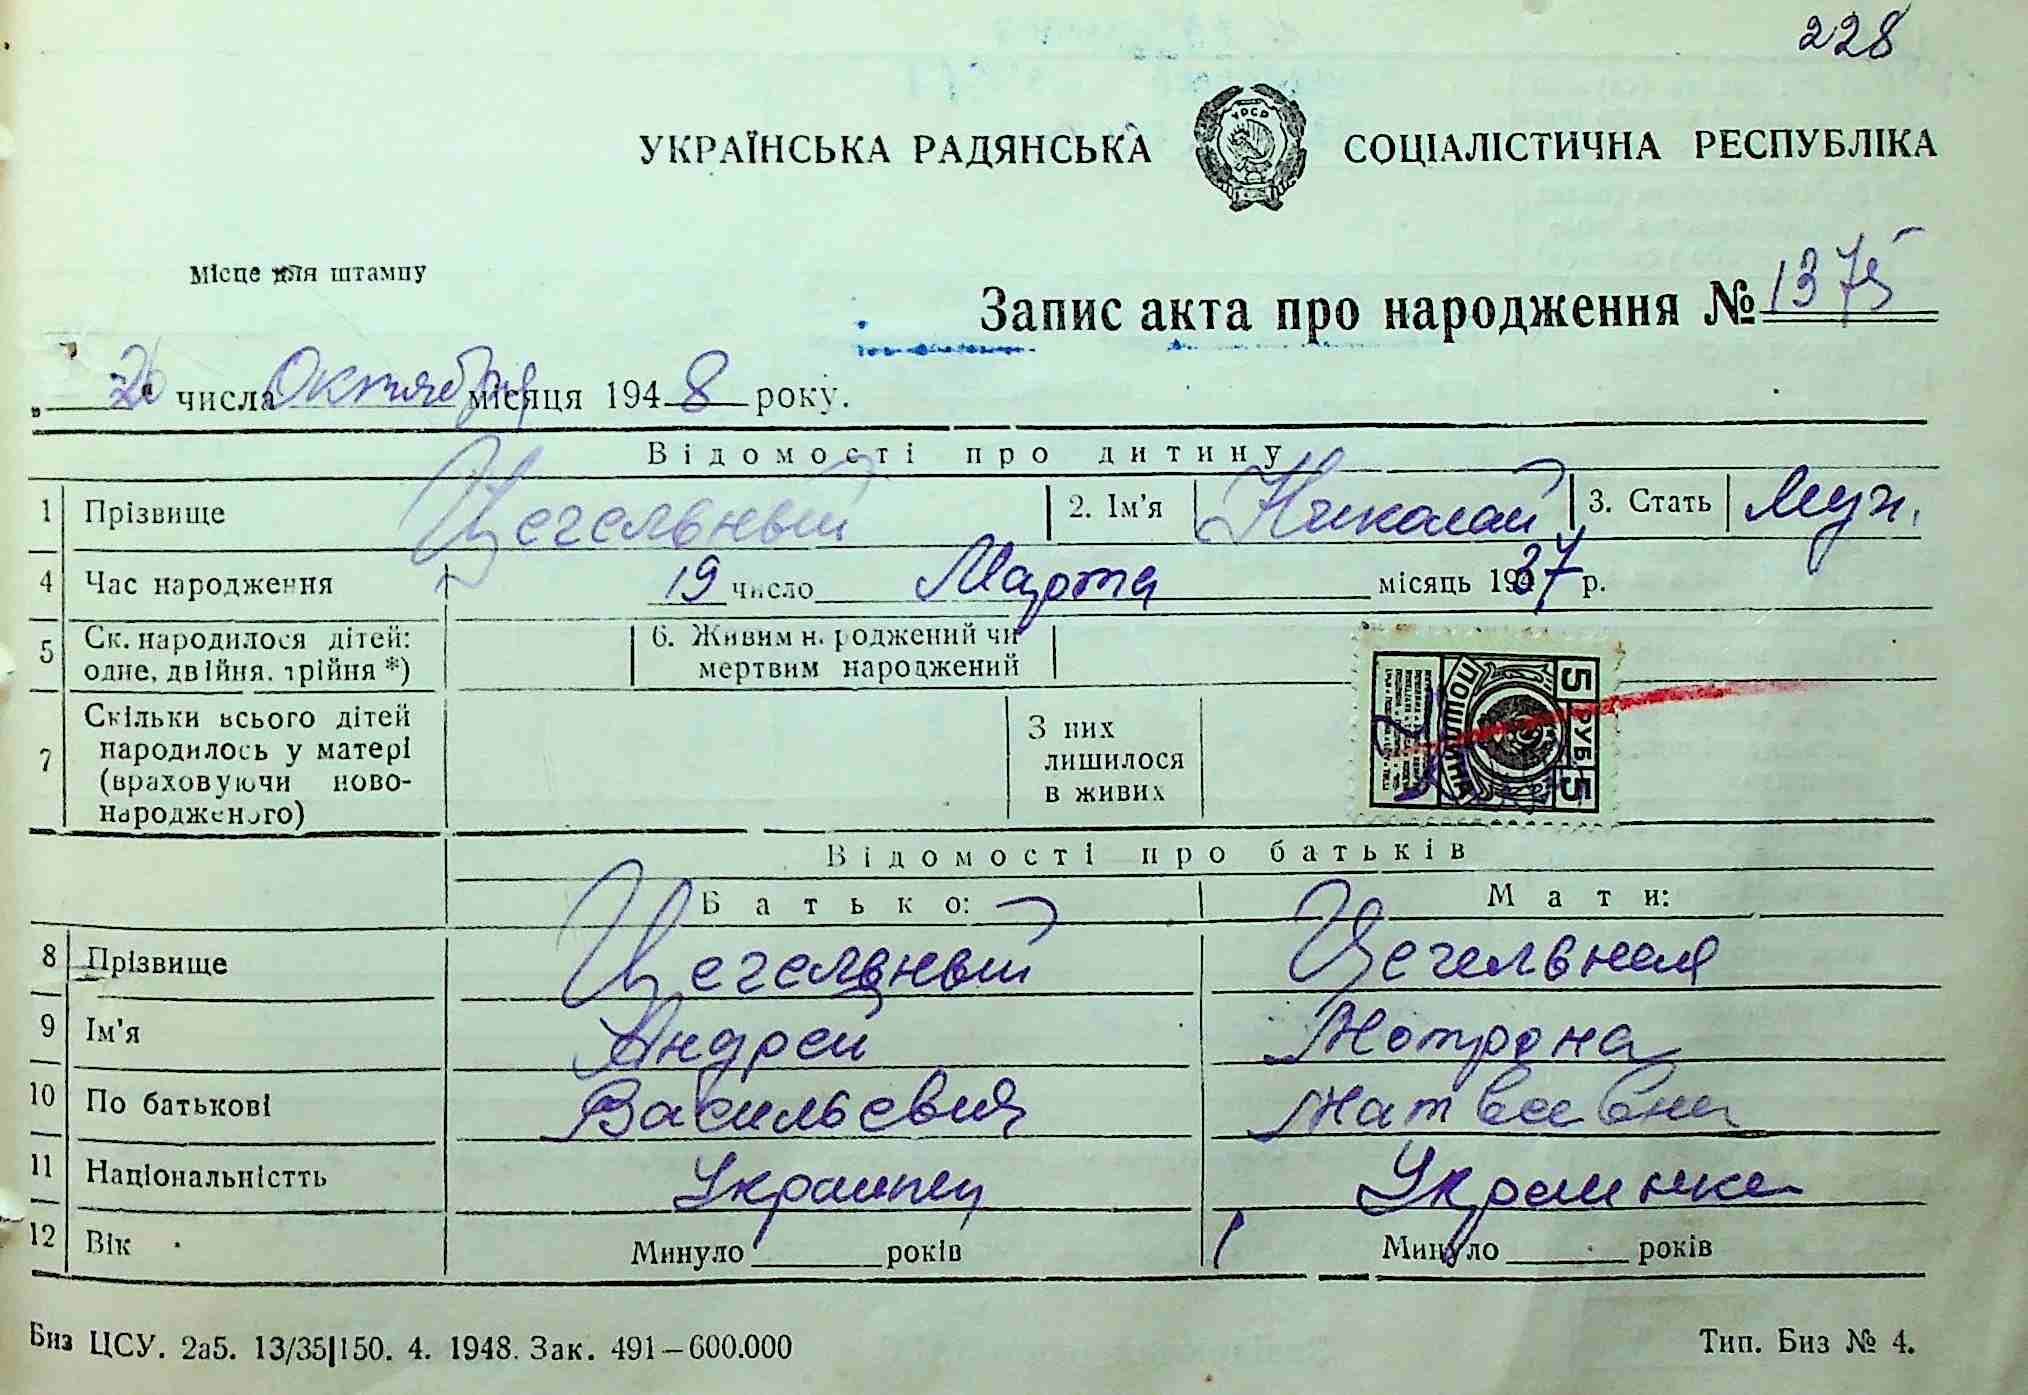 228
УКРАЇНСЬКА РАДЯНСЬКА СОЦІАЛІСТИЧНА РЕСПУБЛІКА
УРСР
Місце для штампу
Запис акта про народження № 1375
„26“ числа Октября місяця 1948 року.
Відомості про дитину
1 Прізвище Цегельный 2. Ім'я Николай 3. Стать Муж.
4 Час народження 19 число Марта місяць 1937 р.
5 Ск. народилося дітей: одне, двійня, трійня *) 6. Живим народжений чи мертвим народжений
7 Скільки всього дітей народилось у матері (враховуючи новонародженого) З них лишилося в живих
5 РУБ. 5
ПОШЛИНА
Відомості про батьків
Батько: Мати:
8 Прізвище Цегельный Цегельная
9 Ім'я Андрей Мотрона
10 По батькові Васильевич Матвеевна
11 Національністть Украинец Украинка
12 Вік Минуло років Минуло років
Биз ЦСУ. 2а5. 13/35|150. 4. 1948. Зак. 491—600.000 Тип. Биз № 4.